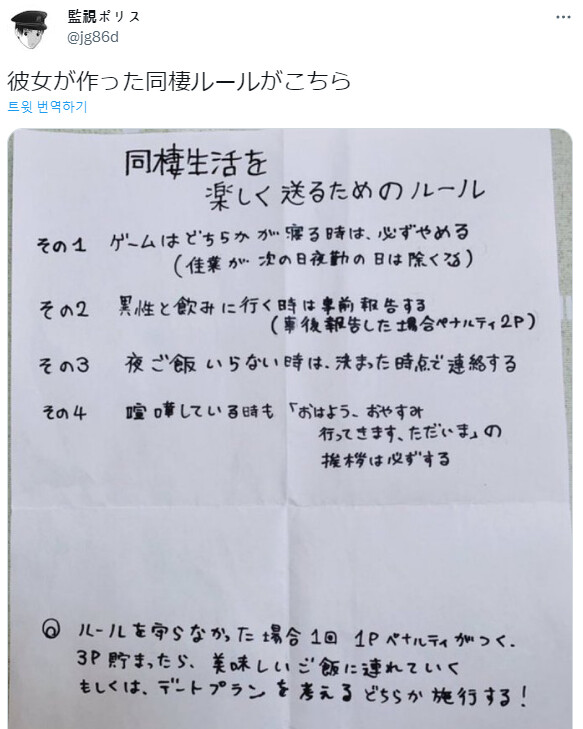 監視ポリス
@jg86d
彼女が作った同棲ルールがこちら
트윗 번역하기
同棲生活を
楽しく送るためのルール
その1 ゲームはどちらかが寝る時は、必ずやめる
(佳業が次の日夜勤の日は除くなる)
その2 異性と飲みに行く時は事前報告する
(事後報告した場合ペナルティ2P)
その3 夜ご飯いらない時は、決まった時点で連絡する
その4 喧嘩している時も「おはよう、おやすみ
行ってきます、ただいま」の
挨拶は必ずする
◎ ルールを守らなかった場合1回 1Pペナルティがつく.
3P貯まったら、美味しいご飯に連れていく
もしくは、デートプランを考えるどちらか施行する!